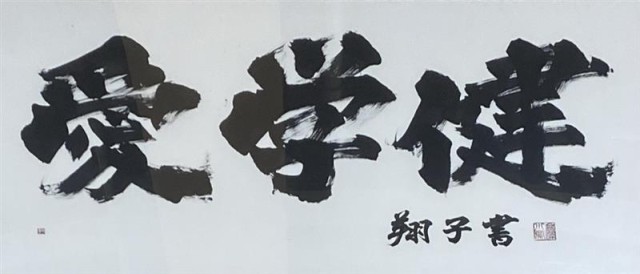 愛学健
翔子書